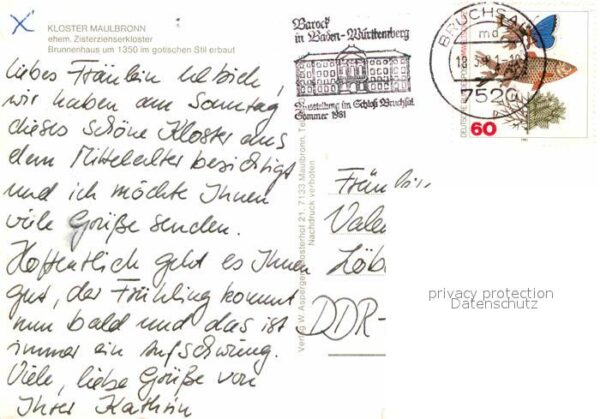 KLOSTER MAULBRONN
ehem. Zisterzienserkloster
Brunnenhaus um 1350 im gotischen Stil erbaut
Liebes Fräulein
wir haben am Sonntag
dieses schöne Kloster aus
dem Mittelalter besichtigt
und ich möchte Ihnen
viele Grüße senden.
Hoffentlich geht es Ihnen
gut, der Frühling kommt
nun bald und das ist
immer ein Aufschwung.
Viele, liebe Grüße von
Ihrer Kathrin
Verlag W. Asperger, Klosterhof 21, 7133 Maulbronn, Te
Nachdruck verboten
Barock
in Baden-Württemberg
Ausstellung im Schloß Bruchsal
Sommer 1981
BRUCHSAL
md
7520
DEUTSCHE BUNDESPOST
60
Fräulein
Vale
Löb
DDR-
privacy protection
Datenschutz